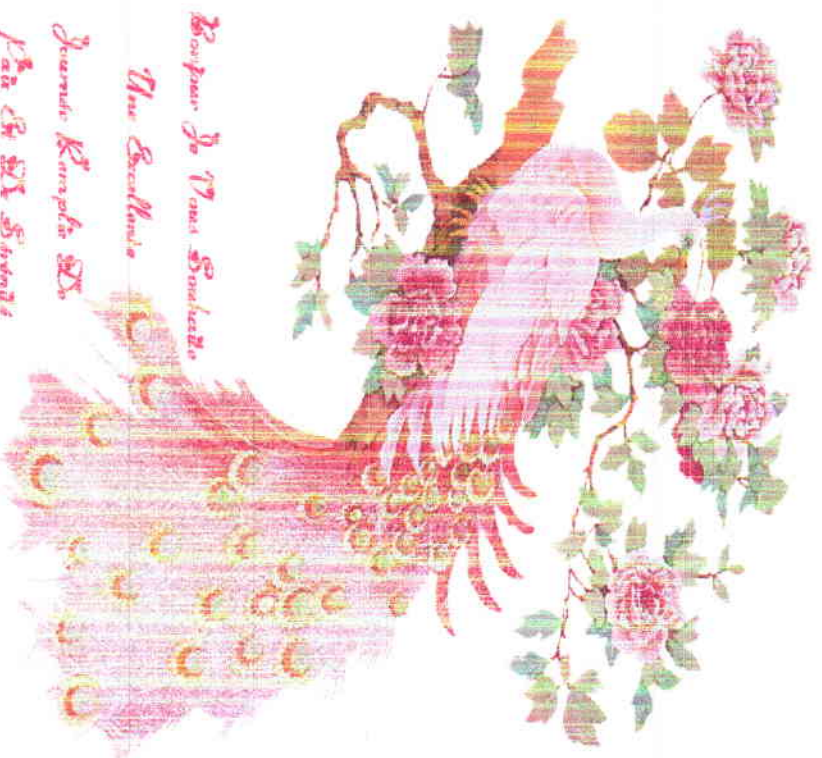 Bonjour Je Vous Souhaite
Une Excellente
Journée Remplie De
Paix Et De Sérénité